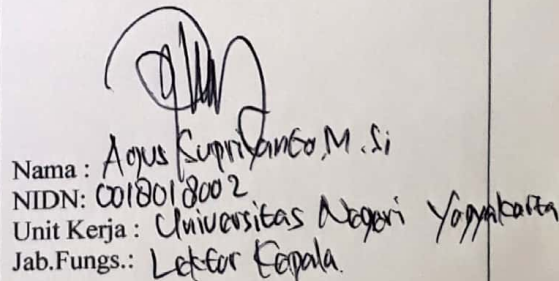 Nama : Agus Supriyanto, M.Si
NIDN: 0018018002
Unit Kerja : Universitas Negeri Yogyakarta
Jab.Fungs.: Lektor Kepala